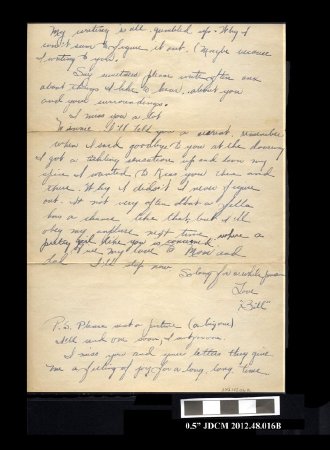 My writing is all jumbled up. Why I
can't seem to figure it out. (Maybe because
I writing to you).
Say sweetness please write often and
about things I like to hear, about you
and your surroundings.
I miss you a lot
I'll tell you a secret, remember
when I said goodbye to you at the
I got a tickling sensation up and down my
spine I wanted to Kiss you then and
there. Why I didn't I never figure
out. It not very often that a fella
has a chance like that but I'll
obey my next time, where a
pretty girl like you is concerned.
my love to Mom and
dad I'll stop now So long for a while
Love
"Bill"
P.S. Please send a picture (a big one)
I'll send one soon,
I miss you and your letters they give
me a feeling of joy for a long, long time.
0.5" JDCM 2012.48.016B